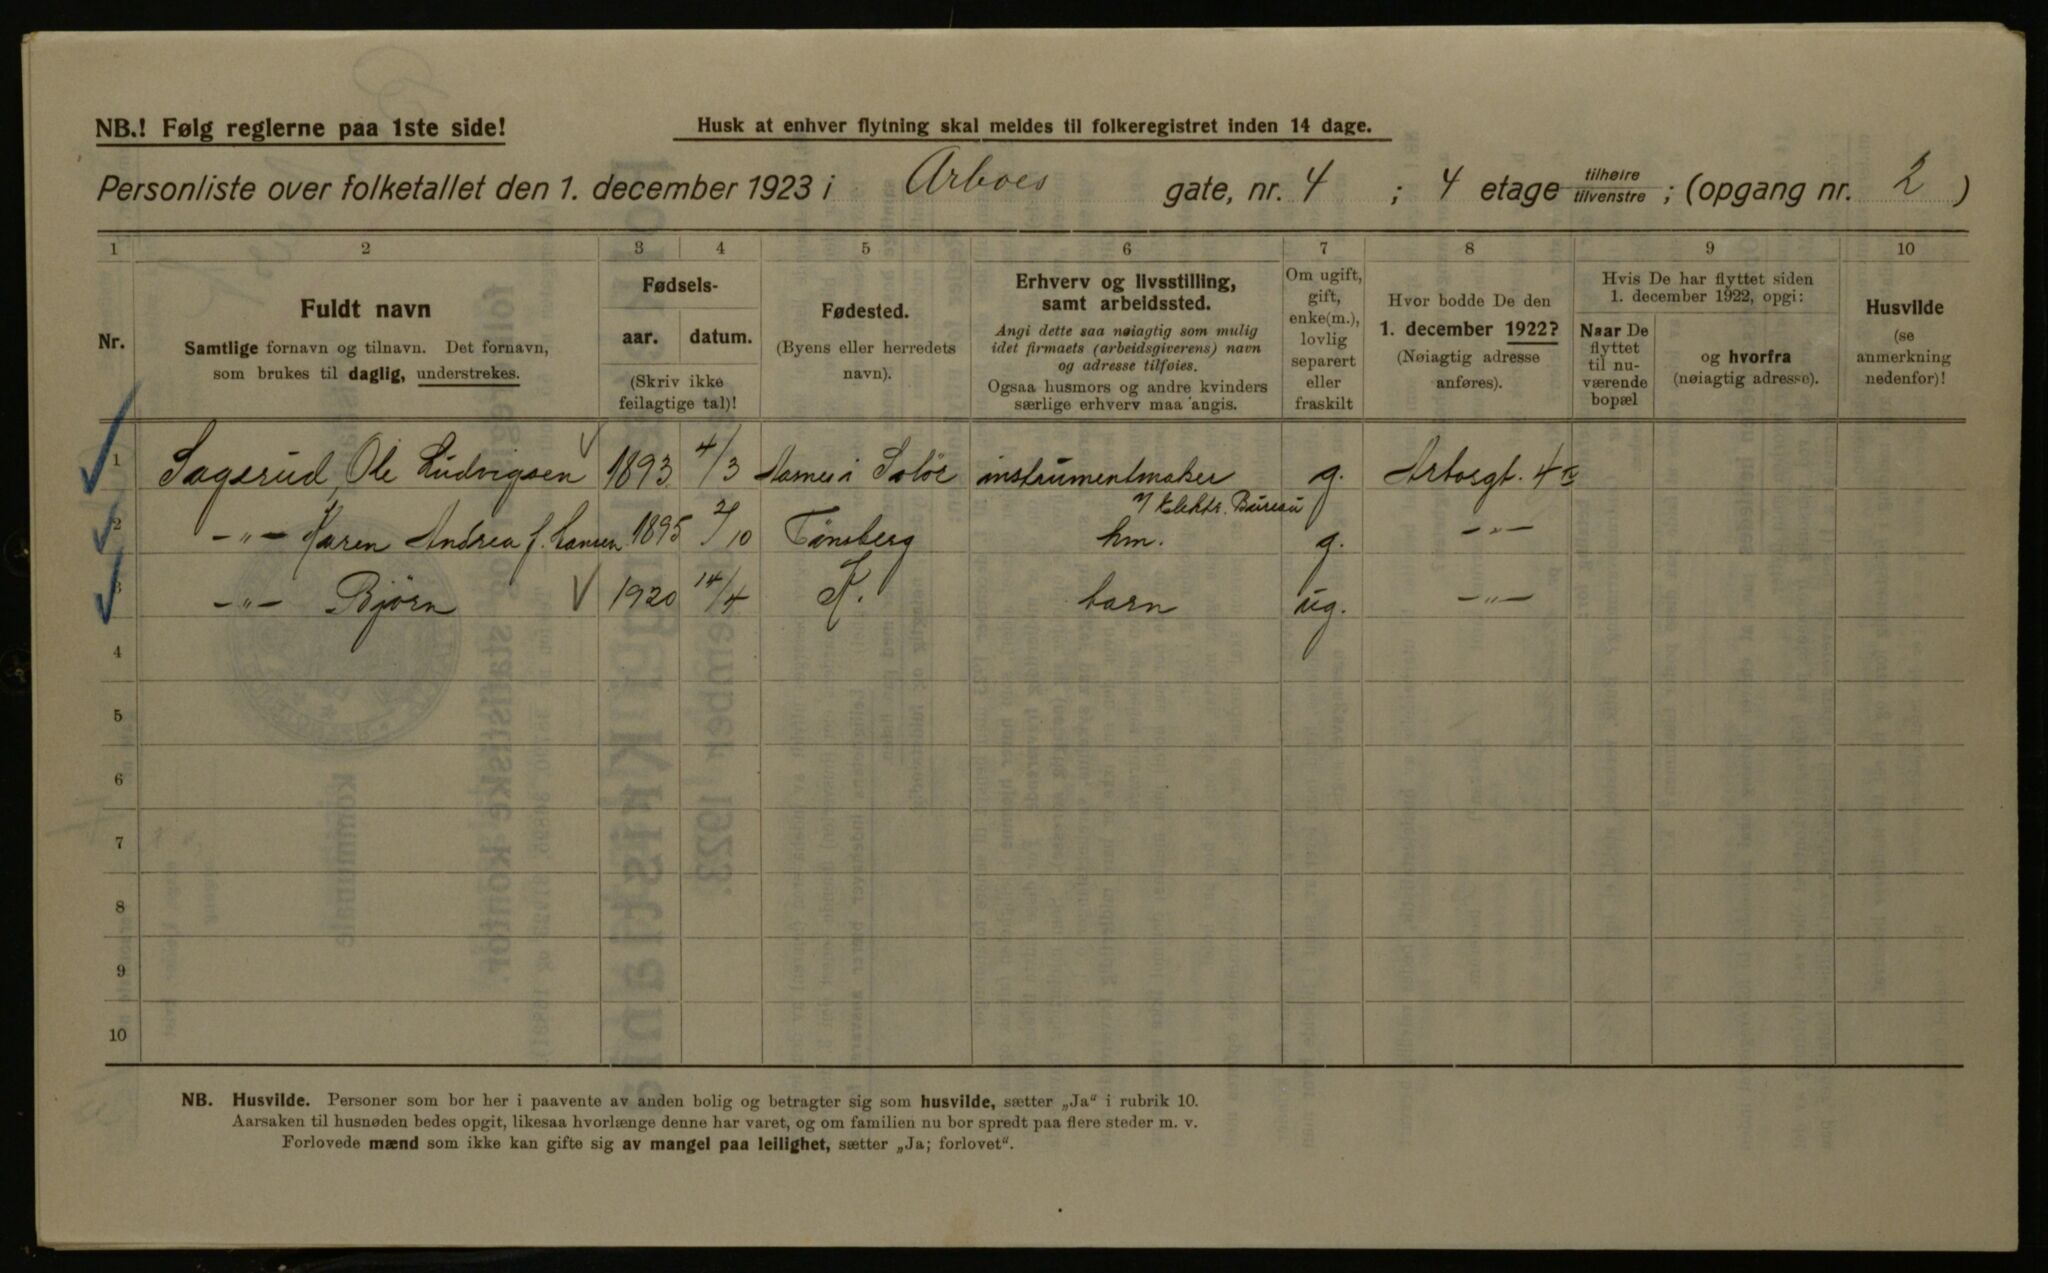 NB.! Følg reglerne paa 1ste side!
Husk at enhver flytning skal meldes til folkeregistret inden 14 dage.
Personliste over folketallet den 1. december 1923 i Arboes gate, nr. 4 ; 4 etage tilhøire tilvenstre ; (opgang nr. 2 )
1 2 3 4 5 6 7 8 9 10
Nr.
Fuldt navn
Samtlige fornavn og tilnavn. Det fornavn,
som brukes til daglig, understrekes.
Fødsels-
aar. datum.
(Skriv ikke
feilagtige tal)!
Fødested.
(Byens eller herredets
navn).
Erhverv og livsstilling,
samt arbeidssted.
Angi dette saa nøiagtig som mulig
idet firmaets (arbeidsgiverens) navn
og adresse tilføies.
Ogsaa husmors og andre kvinders
særlige erhverv maa angis.
Om ugift,
gift,
enke(m.),
lovlig
separert
eller
fraskilt
Hvor bodde De den
1. december 1922?
(Nøiagtig adresse
anføres).
Hvis De har flyttet siden
1. december 1922, opgi:
Naar De
flyttet
til nu-
værende
bopæl
og hvorfra
(nøiagtig adresse).
Husvilde
(se
anmerkning
nedenfor)!
1 Sagerud, Ole Ludvigsen 1893 4/3 i Solör instrumentmaker g. Arbosgt. 4
Elektr. Bureau
2 —"— Karen Andrea f. Hansen 1895 2/10 Tønsberg hm. g. —"—
3 —"— Bjørn 1920 14/4 K. barn ug. —"—
4
5
6
7
8
9
10
NB. Husvilde. Personer som bor her i paavente av anden bolig og betragter sig som husvilde, sætter „Ja“ i rubrik 10.
Aarsaken til husnøden bedes opgit, likesaa hvorlænge denne har varet, og om familien nu bor spredt paa flere steder m. v.
Forlovede mænd som ikke kan gifte sig av mangel paa leilighet, sætter „Ja; forlovet“.